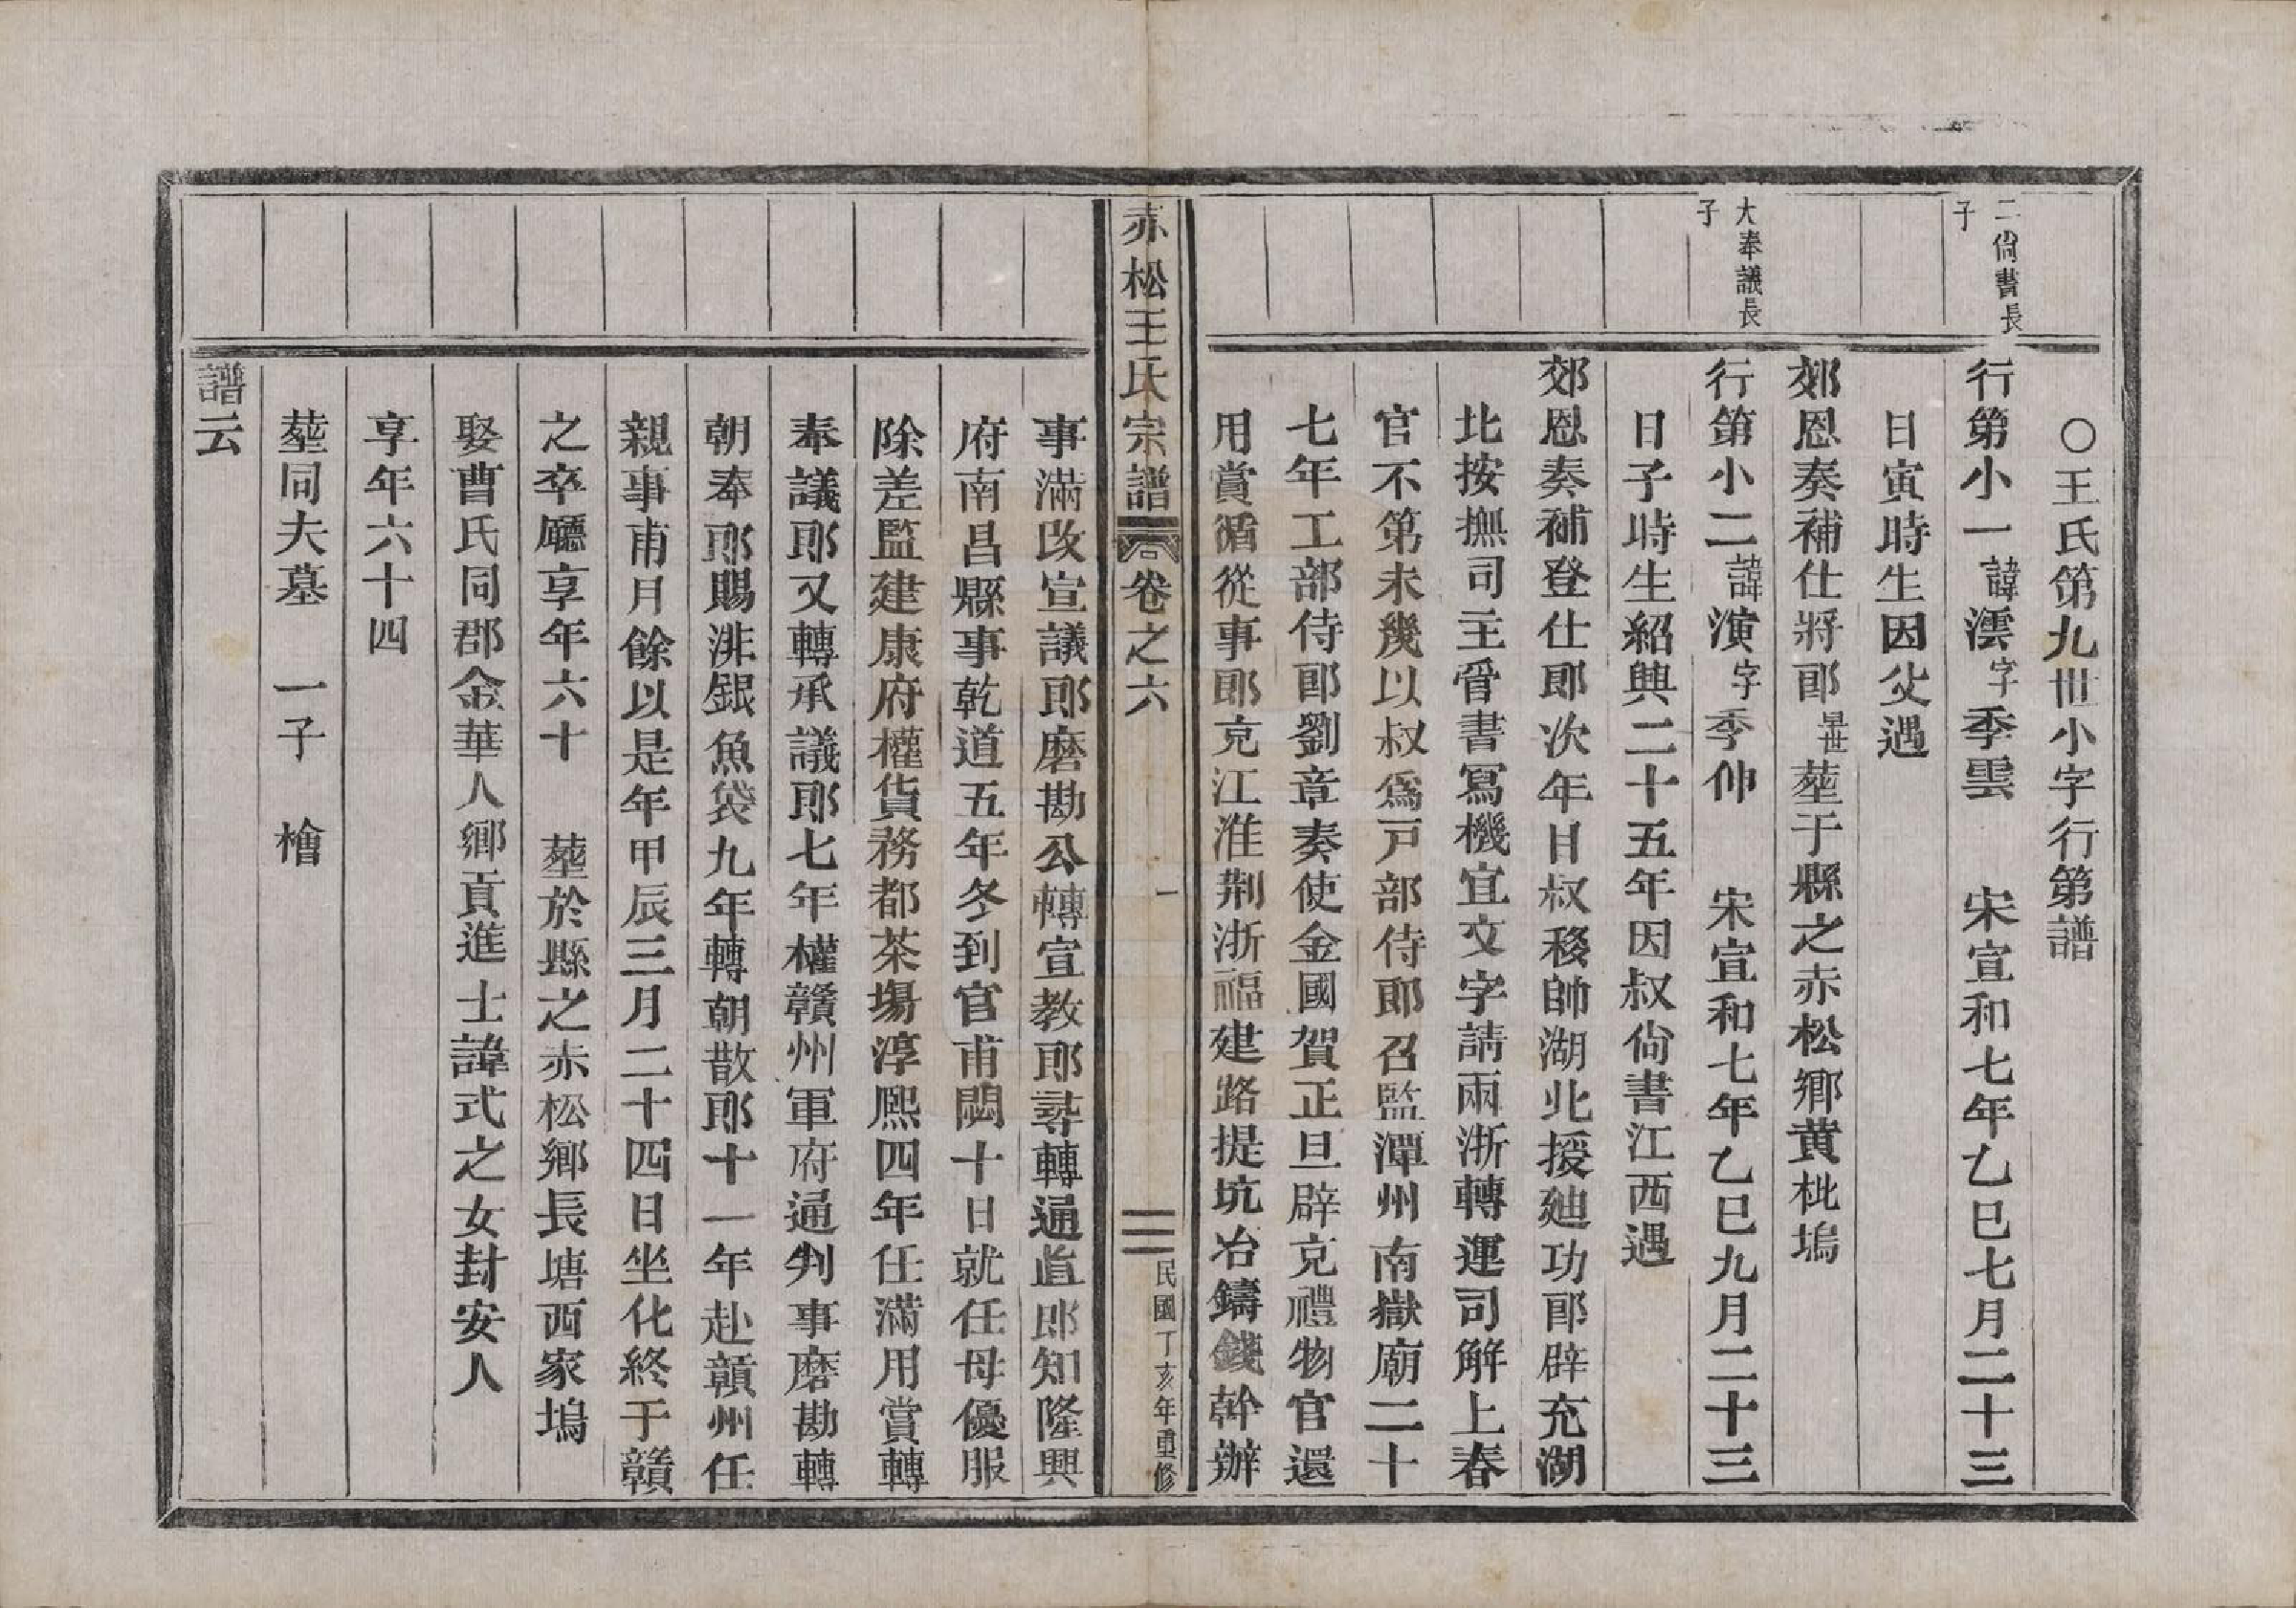 ○王氏第九世小字行第譜
二尙書長子
行第小一諱澐字季雲　宋宣和七年乙巳七月二十三
日寅時生因父遇
郊恩奏補仕將郎早世塟于縣之赤松鄉黄枇塢
大奉議長子
行第小二諱演字季仲　宋宣和七年乙巳九月二十三
日子時生紹興二十五年因叔尙書江西遇
郊恩奏補登仕郎次年日叔移帥湖北授廸功郎辟充湖
北按撫司主管書寫機宜文字請兩浙轉運司解上春
官不第未幾以叔爲戸部侍郎召監潭州南嶽廟二十
七年工部侍郎劉章奏使金國賀正旦辟充禮物官還
用賞循從事郎充江淮荆浙福建路提坑冶鑄錢幹辦
赤松王氏宗譜　卷之六　一　三　民國丁亥年重修
事滿改宣議郎磨勘公轉宣教郎尋轉通直郎知隆興
府南昌縣事乾道五年冬到官甫閱十日就任母優服
除差監建康府權貨務都茶場淳熈四年任滿用賞轉
奉議郎又轉承議郎七年權贛州軍府通判事磨勘轉
朝奉郎賜緋銀魚袋九年轉朝散郎十一年赴贛州任
親事甫月餘以是年甲辰三月二十四日坐化終于贛
之卒廳享年六十　塟於縣之赤松鄉長塘西家塢
娶曹氏同郡金華人鄉貢進士諱式之女封安人
享年六十四
塟同夫墓　一子　檜
譜云